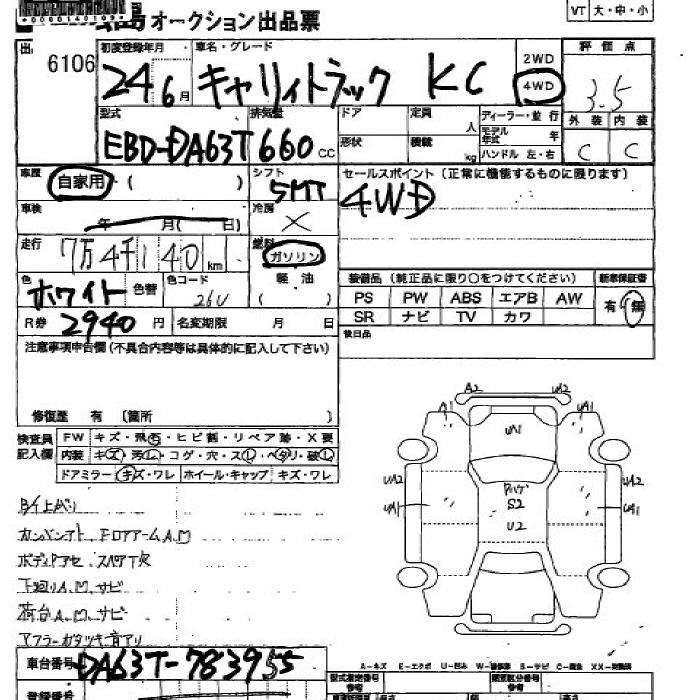 オークション出品票
*0000140109*
VT 大・中・小
出 6106
初度登録年月 車名・グレード 2WD 評価点
24 6月 キャリィトラック KC 4WD 3.5
型式 排気量 ドア 定員 人 ディーラー・並行 外装 内装
EBD-DA63T 660cc 形状 積載 kg モデル年式 年 ハンドル 左・右 C C
車歴 自家用・( ) シフト 5MT セールスポイント(正常に機能するものに限ります)
4WD
車検 年 月( 日) 冷房 ×
走行 7万4千140km 燃料 ガソリン
軽油
( )
色 ホワイト 色替 色コード 26U
装備品(純正品に限り○をつけてください) 新車保証書
PS PW ABS エアB AW 有・無
SR ナビ TV カワ
R券 2940円 名変期限 月 日 後日品
注意事項申告欄(不具合内容等は具体的に記入して下さい)
修復歴 有〔箇所 〕
検査員記入欄 FW キズ・飛石・ヒビ割・リペア跡・X要
内装 キズ・汚レ・コゲ・穴・スレ・ヘタリ・破レ
ドアミラー キズ・ワレ ホイール・キャップ キズ・ワレ
A2 UA2
A1 UA1 UA1
UA2 UA2
UA1 S2 UA1
U2
ボディアセ スペアT欠
下廻りA.M.サビ
荷台A.M.サビ
マフラーガタツキ音アリ
A-キズ E-エクボ U-凹み W-補修跡 S-サビ C-腐食 XX-交換済
車台番号 DA63T-783955
型式指定番号 類別区分番号
登録番号